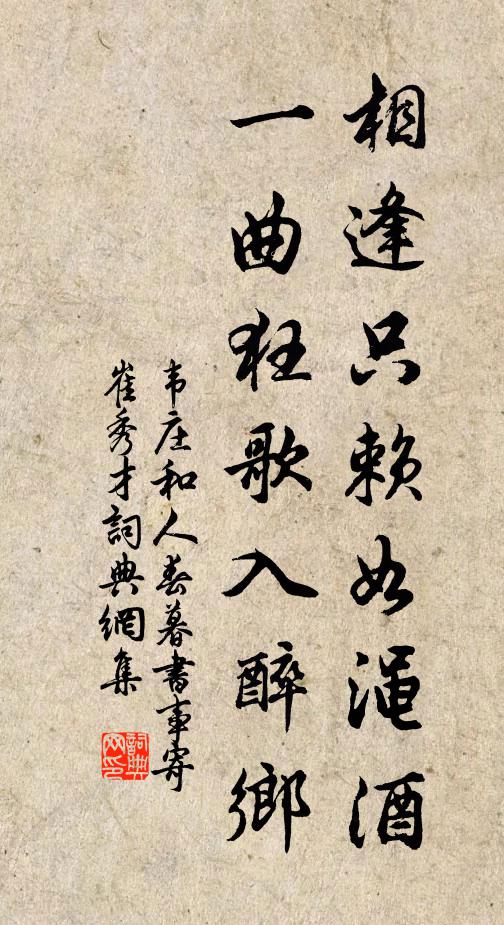 相逢只赖如渑酒
一曲狂歌入醉鄉
韦庄和人春暮書事寄
崔秀才詞典網集
詞典
网印